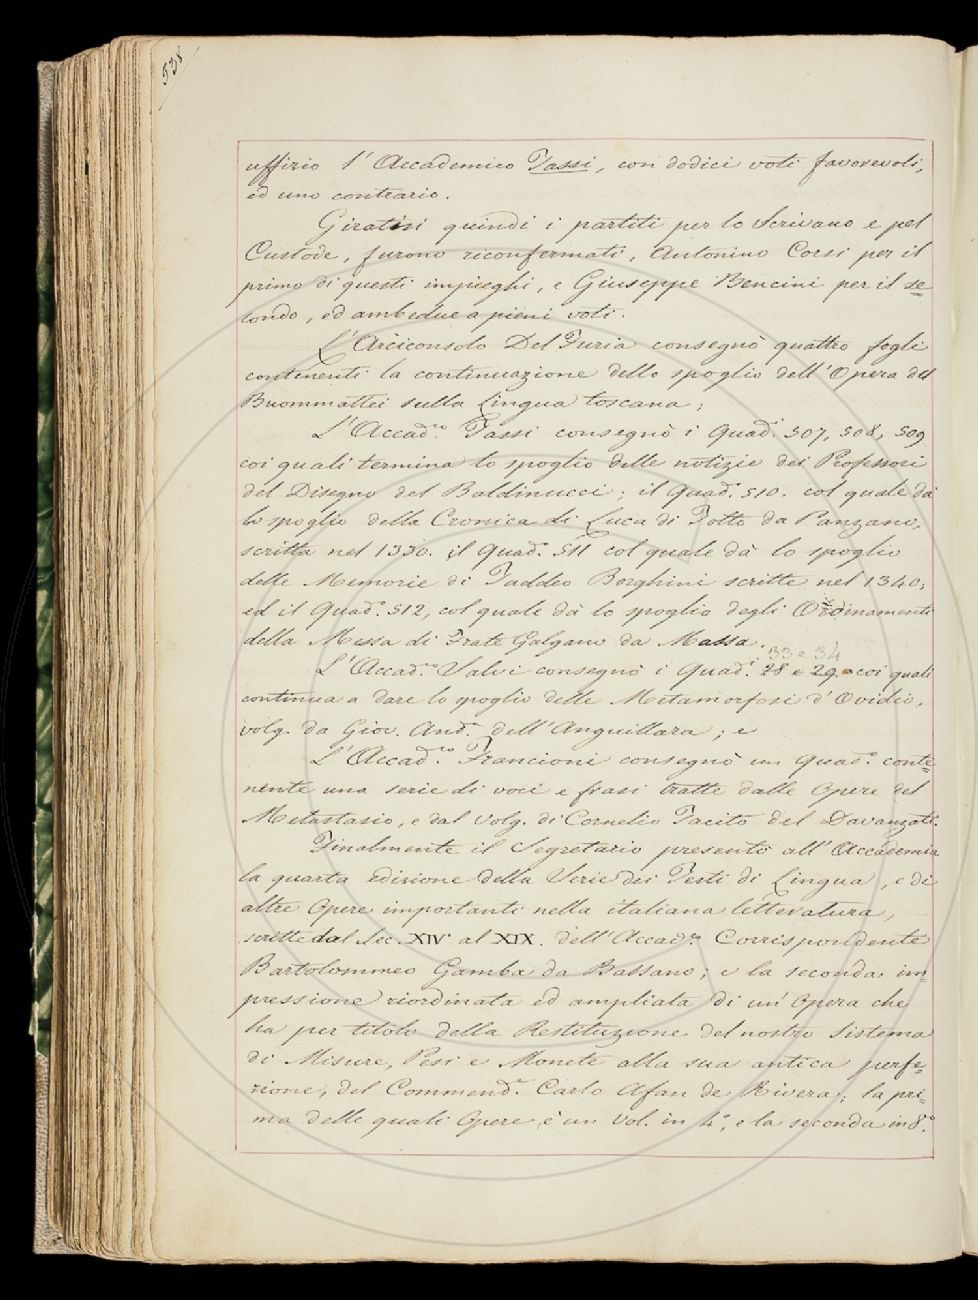 538
uffizio l'Accademico Tassi, con dodici voti favorevoli,
ed uno contrario.
Giratisi quindi i partiti per lo Scrivano e pel
Custode, furono riconfermati, Antonino Corsi per il
primo di questi impieghi, e Giuseppe Bencini per il se=
condo, ed ambedue a pieni voti.
L'Arciconsolo Del Furia consegnò quattro fogli
contenenti la continuazione dello spoglio dell'Opera del
Buommattei sulla Lingua toscana;
L'Accad.co Tassi consegnò i Quad.i 507, 508, 509
coi quali termina lo spoglio delle notizie dei Professori
del Disegno del Baldinucci; il Quad.o 510. col quale dà
lo spoglio della Cronica di Luca di Totto da Panzano,
scritta nel 1330. il Quad.o 511 col quale dà lo spoglio
delle Memorie di Taddeo Borghini scritte nel 1340;
ed il Quad.o 512, col quale dà lo spoglio degli Ordinamenti
della Messa di Frate Galgano da Massa.
33 e 34
L'Accad.co Salvi consegnò i Quad.i 28 e 29. coi quali
continua a dare lo spoglio delle Metamorfosi d'Ovidio,
volg. da Giov. And.a dell'Anguillara; e
L'Accad.co Francioni consegnò un Quad.o conte=
nente una serie di voci e frasi tratte dalle Opere del
Metastasio, e dal volg. di Cornelio Tacito del Davanzati.
Finalmente il Segretario presentò all'Accademia
la quarta edizione della Serie dei Testi di Lingua, e di
altre Opere importanti nella italiana letteratura,
scritte dal Sec. XIV al XIX. dell'Accad.co Corrispondente
Bartolommeo Gamba da Bassano; e la seconda im
pressione riordinata ed ampliata di un'Opera che
ha per titolo della Restituzione del nostro Sistema
di Misure, Pesi e Monete alla sua antica perfe=
zione, del Commend.e Carlo Afan de Rivera; la pri=
ma delle quali Opere è un Vol. in 4.o, e la seconda in 8.o